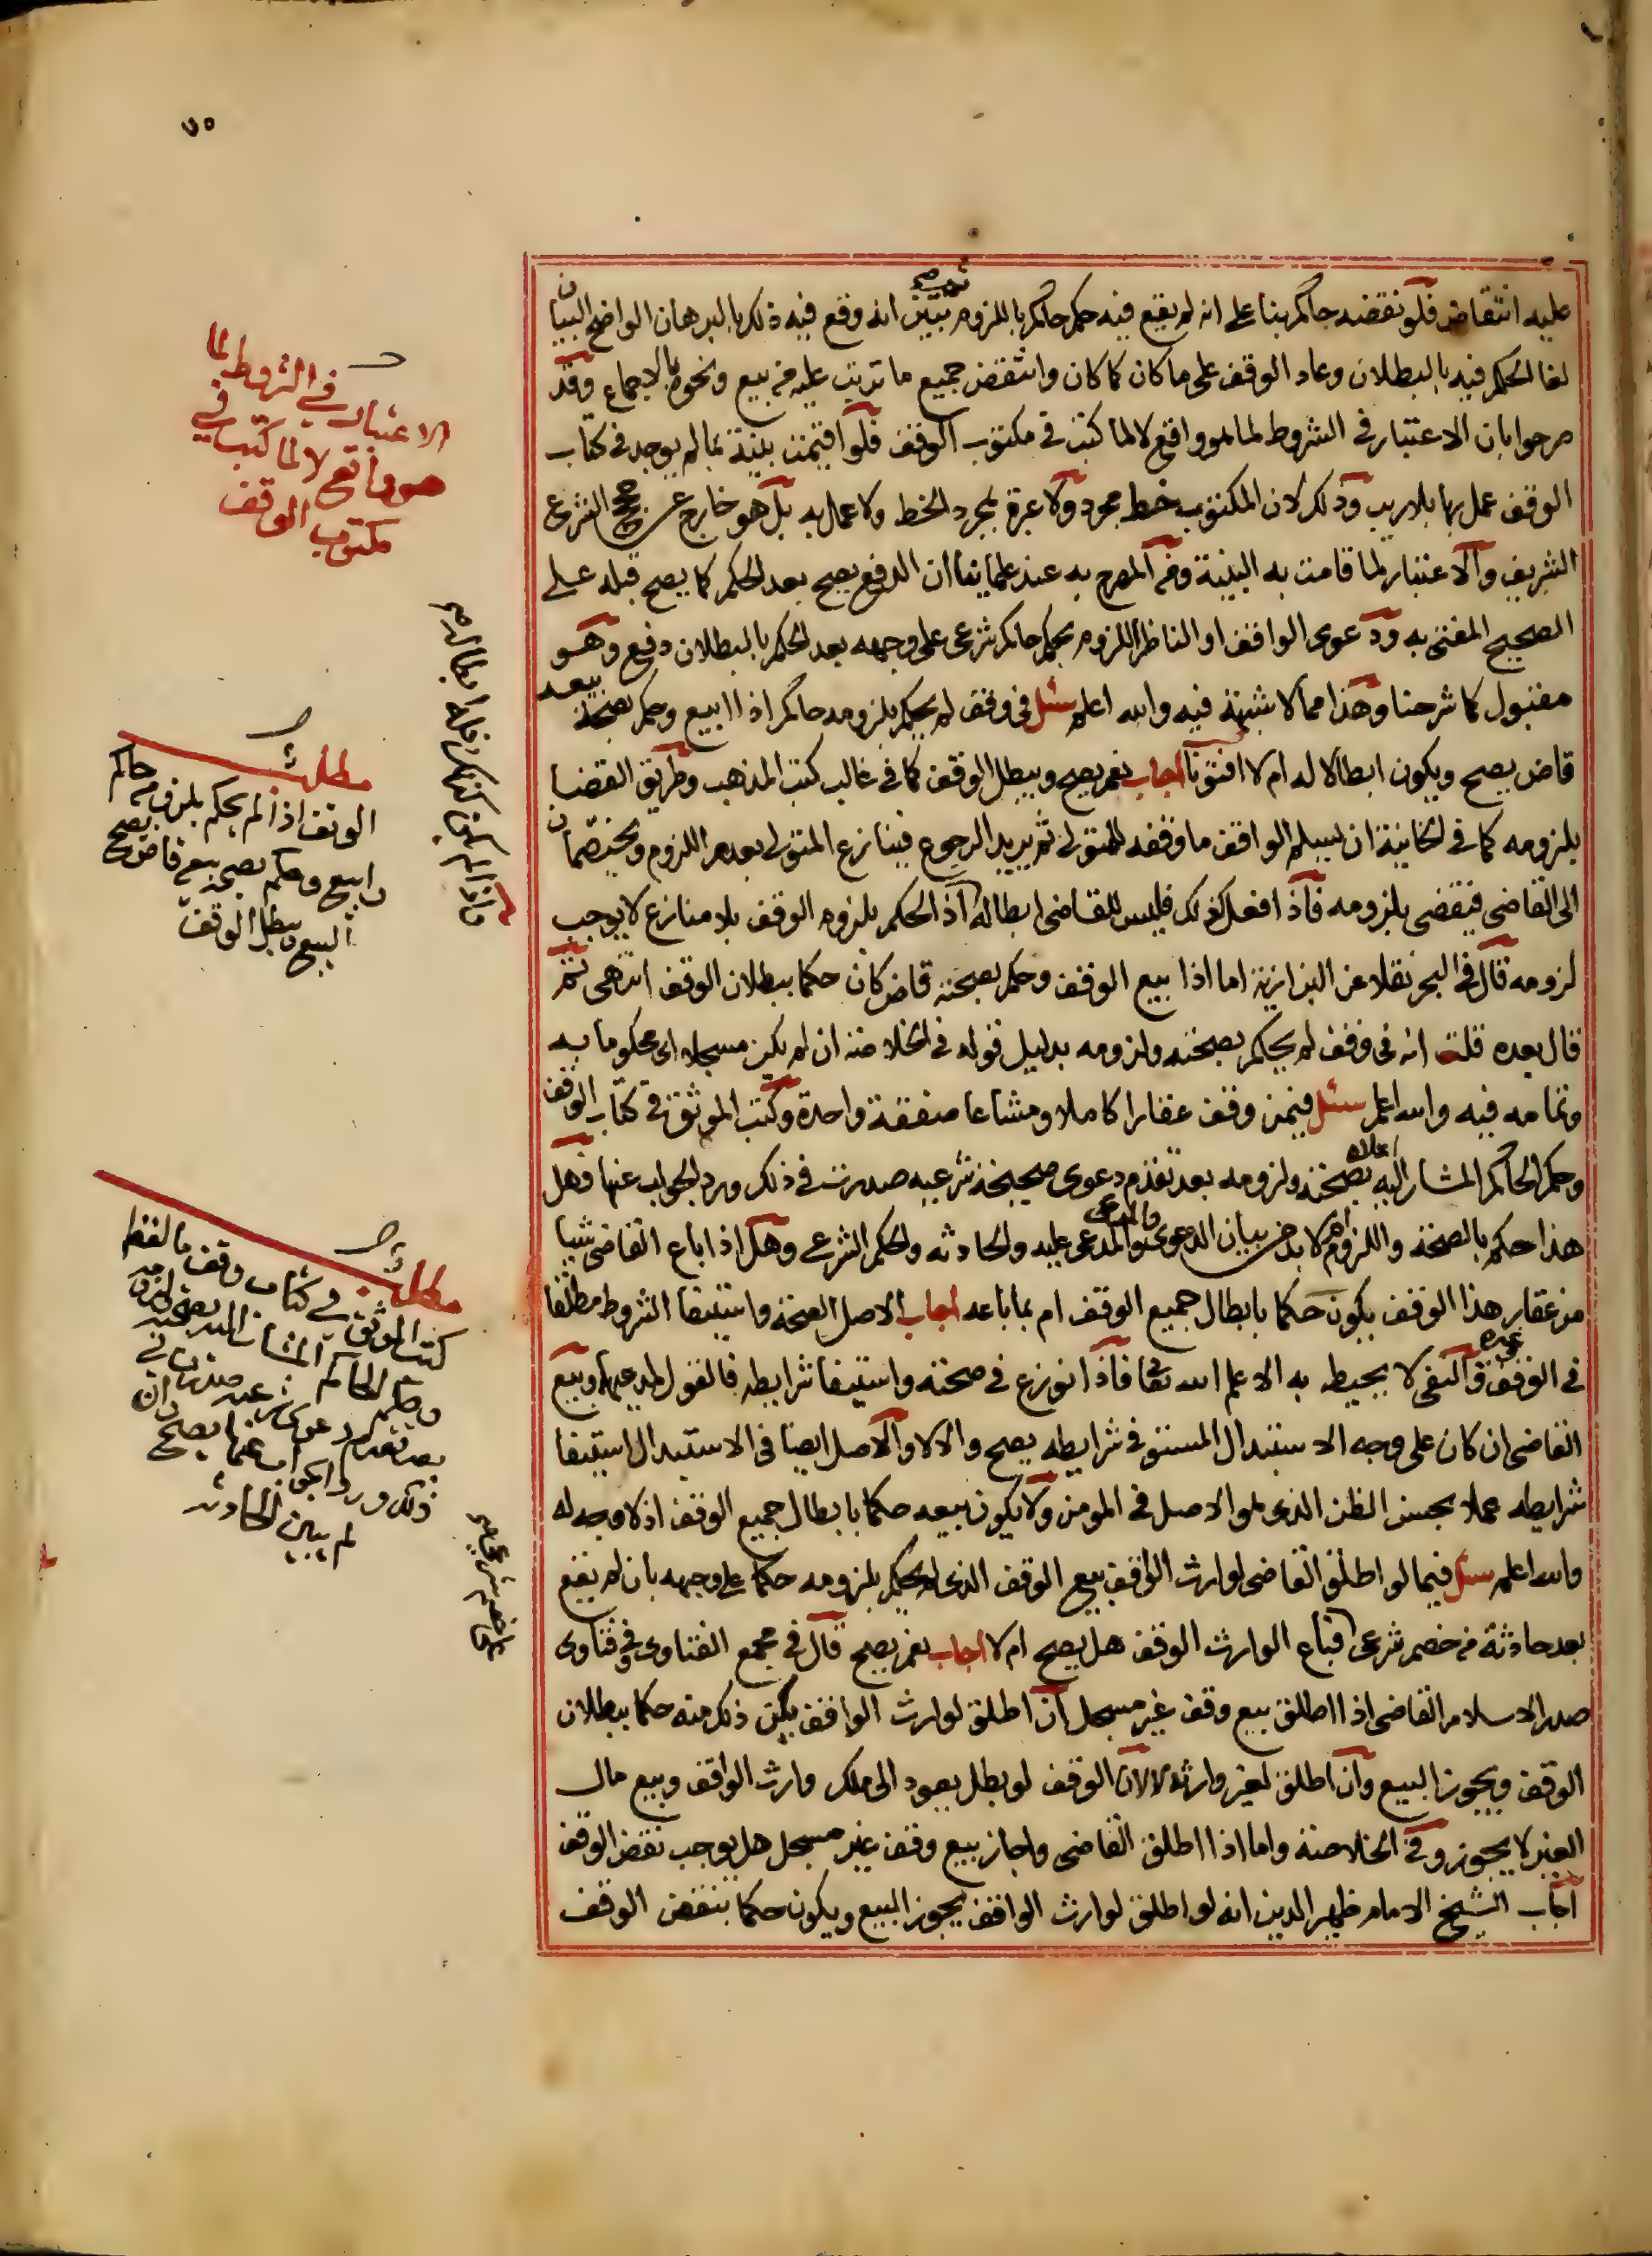 ٧٥
عليه انتقاض فلو نقضه حاكم بنا على انه لم يقع فيه حكم حاكم باللزوم ثم تبين انه وقع فيه ذلك بالبرهان الواضح البيان
لغا الحكم فيه بالبطلان وعاد الوقف على ما كان كما كان وانتقض جميع ما ترتب عليه من بيع ونحوه بالاجماع وقد
صرحوا بان الاعتبار في الشروط لما هو واقع لا لما كتب في مكتوب الوقف فلو اقيمت بينة بما لم يوجد في كتاب
الوقف عمل بها بلا ريب وذلك لان المكتوب خط مجرد ولا عبرة بمجرد الخط ولا عمل به بل هو خارج عن حجج الشرع
الشريف والاعتبار لما قامت به البينة ومن المصرح به عند علمائنا ان الدفع يصح بعد الحكم كما يصح قبله على
الصحيح المفتى به ودعوى الواقف او الناظر اللزوم بحكم حاكم شرعي على وجهه بعد الحكم بالبطلان دفع وهو
مقبول كما شرحنا وهذا مما لا شبهة فيه والله اعلم سئل في وقف لم يحكم بلزومه حاكم اذا ابيع وحكم بصحة بيعه
قاض يصح ويكون ابطالا له ام لا افتونا اجاب نعم يصح ويبطل الوقف كما في غالب كتب المذهب وطريق القضا
بلزومه كما في الخانية ان يسلم الواقف ما وقفه للمتولي ثم يريد الرجوع فينازع المتولي بعدم اللزوم ويختصمان
الى القاضي فيقضي بلزومه فاذا فعل كذلك فليس للقاضي ابطاله اذ الحكم بلزوم الوقف بلا منازع لا يوجب
لزومه قال في البحر نقلا عن البزازية اما اذا بيع الوقف وحكم بصحته قاض كان حكما ببطلان الوقف انتهى ثم
قال بعده قلت انه في وقف لم يحكم بصحته ولزومه بدليل قوله في الخلاصة ان لم يكن مسجلا اي محكوما به
وتمامه فيه والله اعلم سئل فيمن وقف عقارا كاملا ومشاعا صفقة واحدة وكتب الموثق في كتاب الوقف
وحكم الحاكم المشار اليه اعلاه بصحته ولزومه بعد تقدم دعوى صحيحة شرعية صدرت في ذلك ورد الجواب عنها فهل
هذا حكم بالصحة واللزوم ام لا بد من بيان الدعوى والمدعي والمدعى عليه والحادثة والحكم الشرعي وهل اذا باع القاضي شيا
من عقار هذا الوقف يكون حكما بابطال جميع الوقف ام بما باعه اجاب الاصل الصحة واستيفا الشروط مطلقا
في الوقف وغيره والنفي لا يحيط به الا علم الله تعالى فاذا نوزع في صحته واستيفا شرايطه فالقول لمدعيها وبيع
القاضي ان كان على وجه الاستبدال المستوفي شرايطه يصح والا لا والاصل ايضا في الاستبدال استيفا
شرايطه عملا بحسن الظن الذي هو الاصل في المومن ولا يكون بيعه حكما بابطال جميع الوقف اذ لا وجه له
والله اعلم سئل فيما لو اطلق القاضي لوارث الواقف بيع الوقف الذي لم يحكم بلزومه حكما على وجهه بان لم يقع
بعد حادثة من خصم شرعي فباع الوارث الوقف هل يصح ام لا اجاب نعم يصح قال في مجمع الفتاوى وفي فتاوى
صدر الاسلام القاضي اذا اطلق بيع وقف غير مسجل ان اطلق لوارث الواقف يكون ذلك منه حكما ببطلان
الوقف ويجوز البيع وان اطلق لغير وارثه لا لان الوقف لو بطل يعود الى ملك وارث الواقف وبيع مال
الغير لا يجوز وفي الخلاصة واما اذا اطلق القاضي واجاز بيع وقف غير مسجل هل يوجب نقض الوقف
اجاب الشيخ الامام ظهير الدين انه لو اطلق لوارث الواقف يجوز البيع ويكون حكما بنقض الوقف
الاعتبار في الشروط لما
هو واقع لا لما كتب في
مكتوب الوقف
مطلب
الوقف اذا لم يحكم بلزومه حاكم
وابيع وحكم بصحة بيعه قاض يصح
البيع ويبطل الوقف
مطلب
كتب الموثق في كتاب وقف ما لفظه
وحكم الحاكم المشار اليه بصحته ولزومه
بعد تقدم دعوى شرعية صدرت في
ذلك ورد الجواب عنها يصح وان
لم يبين الحادثة